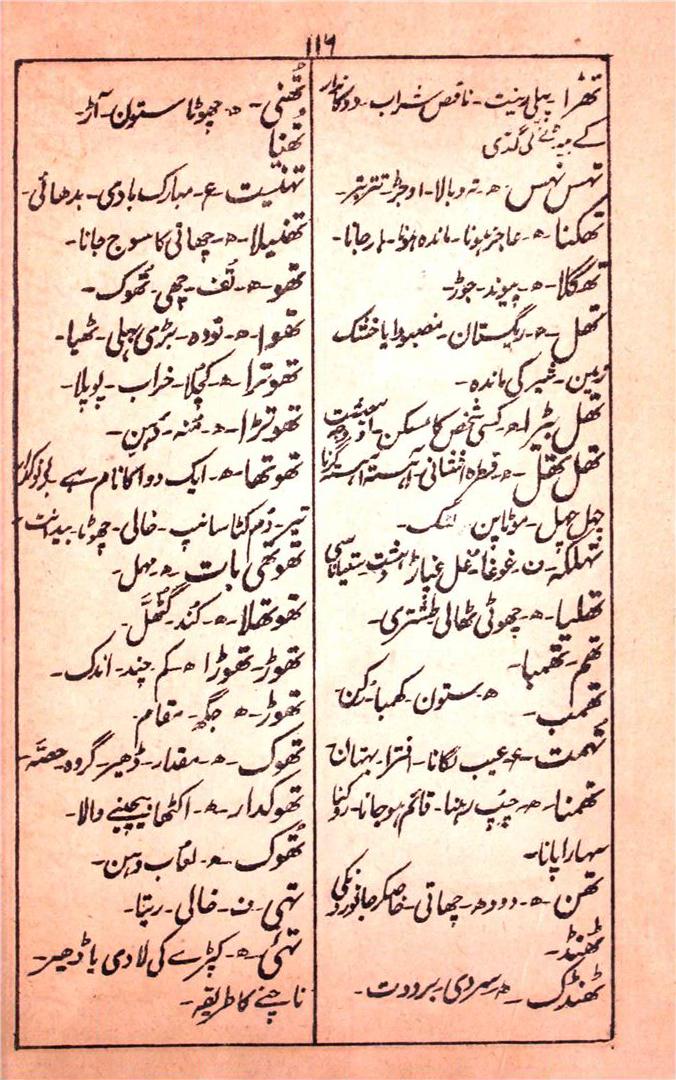 ۱۱۶
تھرا۔ پہلی رینت۔ ناقص شراب۔ دوکاندار
کے کی گدّی
تہس نہس۔ ھ۔ تہ و بالا۔ اوجڑ۔ تتر بتر۔
تھکنا۔ ھ۔ عاجز ہونا۔ ماندہ ہونا۔ ہار جانا۔
تھگلا۔ ھ۔ پیوند۔ جوڑ۔
تھل۔ ھ۔ ریگستان۔ خشک
زمین۔ شیر کی ماندہ۔
تھل بیڑا۔ ھ۔ کسی شخص کا مسکن۔
تھل تھل۔ ھ۔ قطرہ افشانی۔ آہستہ آہستہ گرنا
جھل جھل۔ موٹاپن۔ لٹک۔
تہلکہ۔ ن۔ غوغا۔ غل غپاڑا۔ دہشت۔
تھلیا۔ ھ۔ چھوٹی تھالی۔ طشتری۔
تھم۔ تھمبا۔
تھمب۔ ھ۔ ستون۔ کھمبا۔ رکن۔
تہمت۔ ع۔ عیب لگانا۔ افترا۔ بہتان
تھمنا۔ ھ۔ چپ رہنا۔ قائم ہو جانا۔ روکنا
سہارا پانا۔
تھن۔ ھ۔ دودھ۔ چھاتی۔ خاصکر جانورونکی
ٹھنڈ۔
ٹھنڈک۔ ھ۔ سردی۔ برودت۔
تُھنی۔ ھ۔ چھوٹا ستون۔ آڑ۔
تُھنیا
تہنیت۔ ع۔ مبارک بادی۔ بدھائی۔
تھنیلا۔ ھ۔ چھاتی کا سوج جانا۔
تھو۔ ھ۔ تُف۔ چھی۔ تُھوک۔
تھوا۔ ھ۔ تودہ۔ بڑی بھلی۔ ٹھیا۔
تھوترا۔ ھ۔ کچلا۔ خراب۔ پوپلا۔
تھوتڑا۔ ھ۔ مُنہ۔ دہن۔
تھوتھا۔ ھ۔ ایک دوا کا نام ہے
تیر۔ دُم کٹا سانپ۔ خالی۔ چھوٹا۔
تھوتھی بات۔ ھ۔ مہمل۔
تھوتھلا۔ ھ۔ کُند۔ گٹھل۔
تھوڑ۔ تھوڑا۔ ھ۔ کم۔ چند۔ اندک۔
تھوڑ۔ ھ۔ جگہ۔ مقام۔
تھوک۔ ھ۔ مقدار۔ ڈھیر۔ گروہ۔ حصّہ۔
تھوکدار۔ ھ۔ اکٹھا بیچنے والا۔
تُھوک۔ ھ۔ لعاب دہن۔
تہی۔ ن۔ خالی۔ ریتا۔
تہئی۔ ھ۔ کپڑے کی لادی یا ڈھیر۔
ناچنے کا طریقہ۔